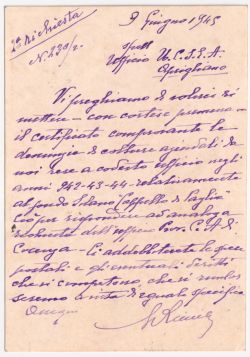 2ª richiesta
N. 230/2.
9 Giugno 1945
Spett
Ufficio U.C.S.E.A.
Aprigliano
Vi preghiamo di volerci ri
mettere - con cortese premura -
il certificato comprovante le
denunzie di costesse aziendali da
noi rese a codesto ufficio negli
anni 942-43-44 - relativamente
al fondo Silano "Cappello di Paglia"
Ciò per rispondere ad analoga
richiesta dell'
Cosenza - Ci addebiterete le spese
postali e gli eventuali diritti
che vi competono, che vi rimbor
seremo a vista di regolare specifica